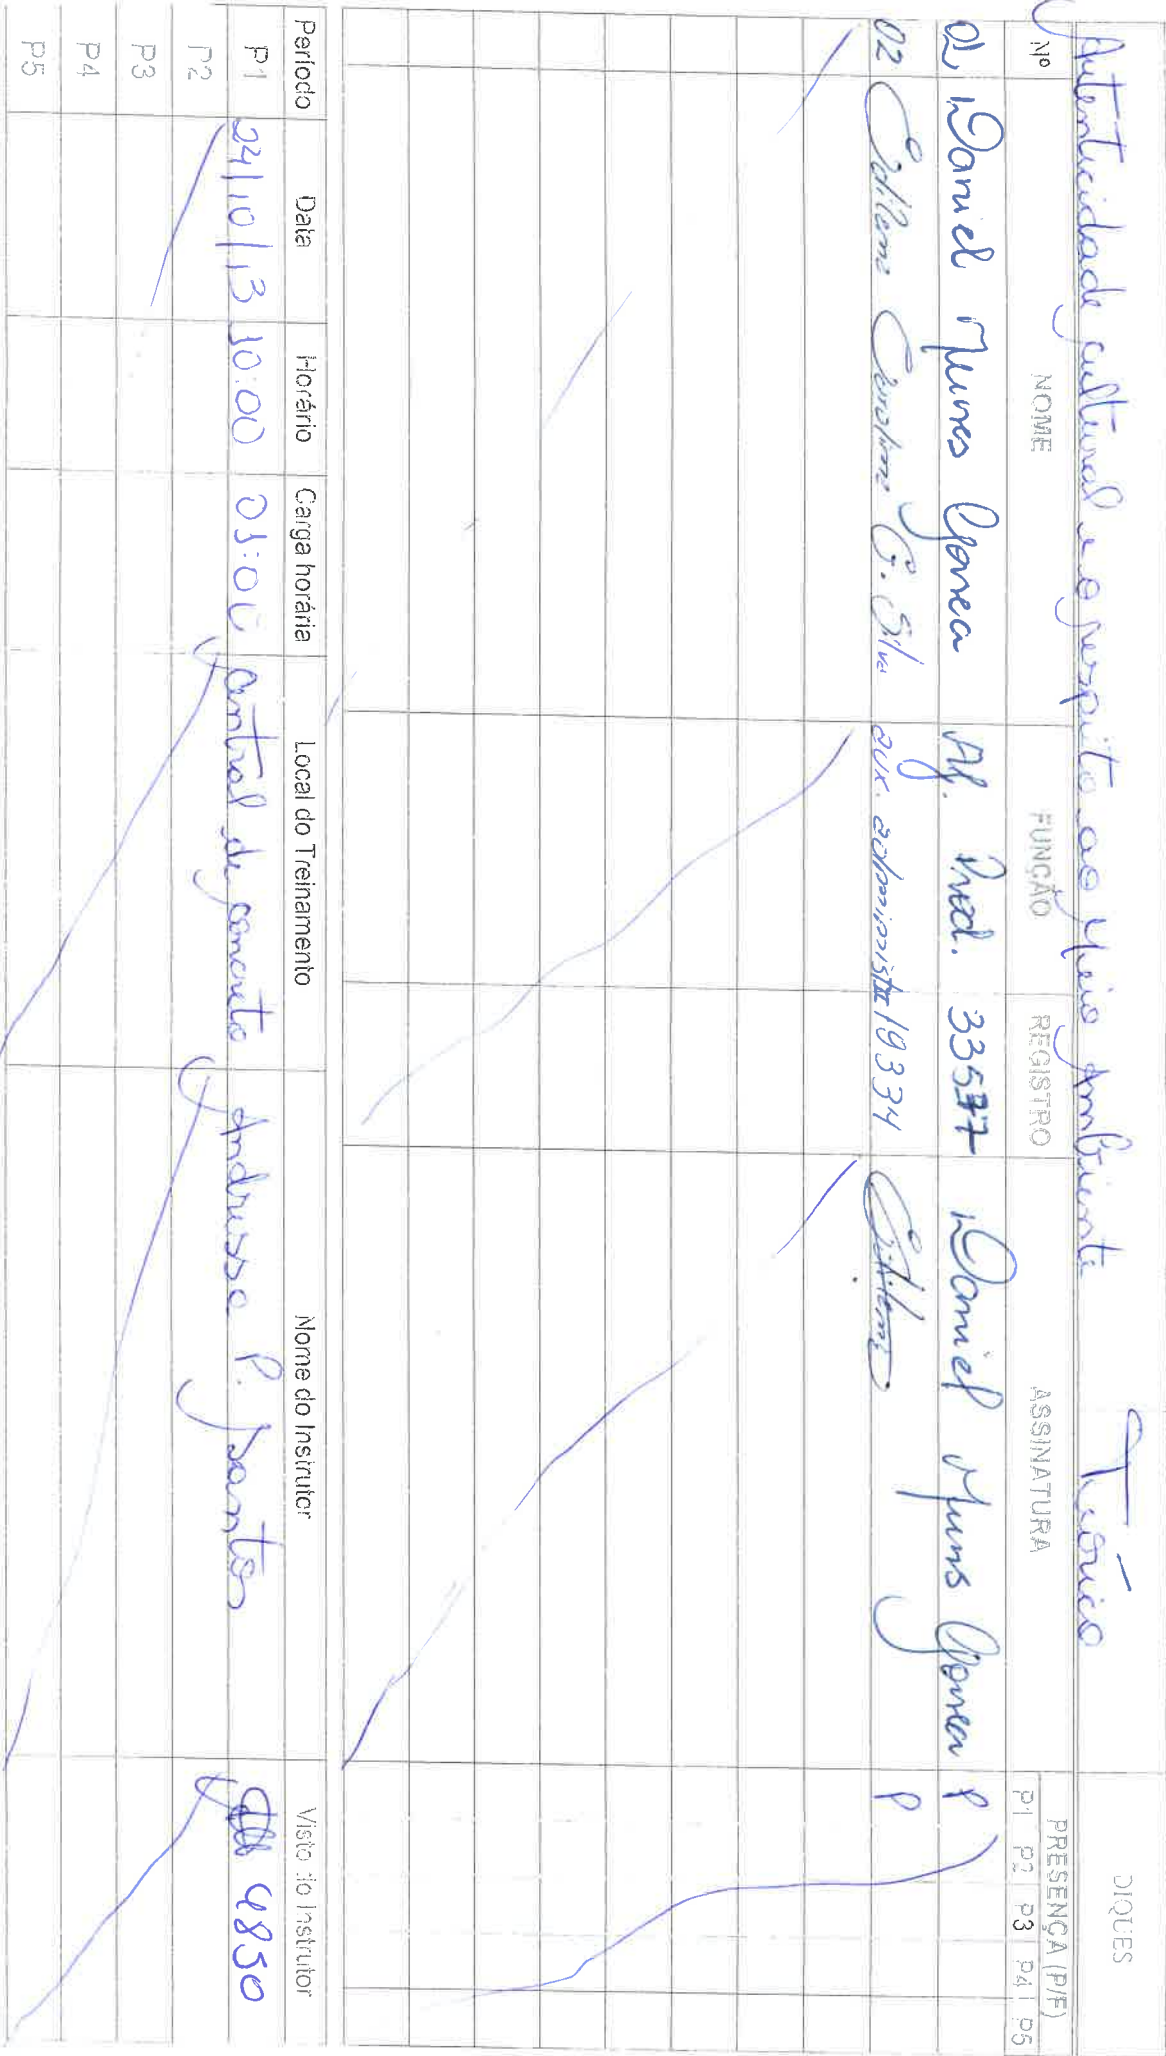 Autenticidade cultural e o respeito ao Meio Ambiente Teórico DIQUES
Nº NOME FUNÇÃO REGISTRO ASSINATURA PRESENÇA (P/F)
P1 P2 P3 P4 P5
01 Daniel Nunes Gouvea Aj. Prod. 33577 Daniel Nunes Gouvea P
02 Edilene Carolina G. Silva aux. administr 19334 Edilene P
Período Data Horário Carga horária Local do Treinamento Nome do Instrutor Visto do Instrutor
P1 24/10/13 10:00 01:00 Central de concreto Andressa P. Santos 4850
P2
P3
P4
P5